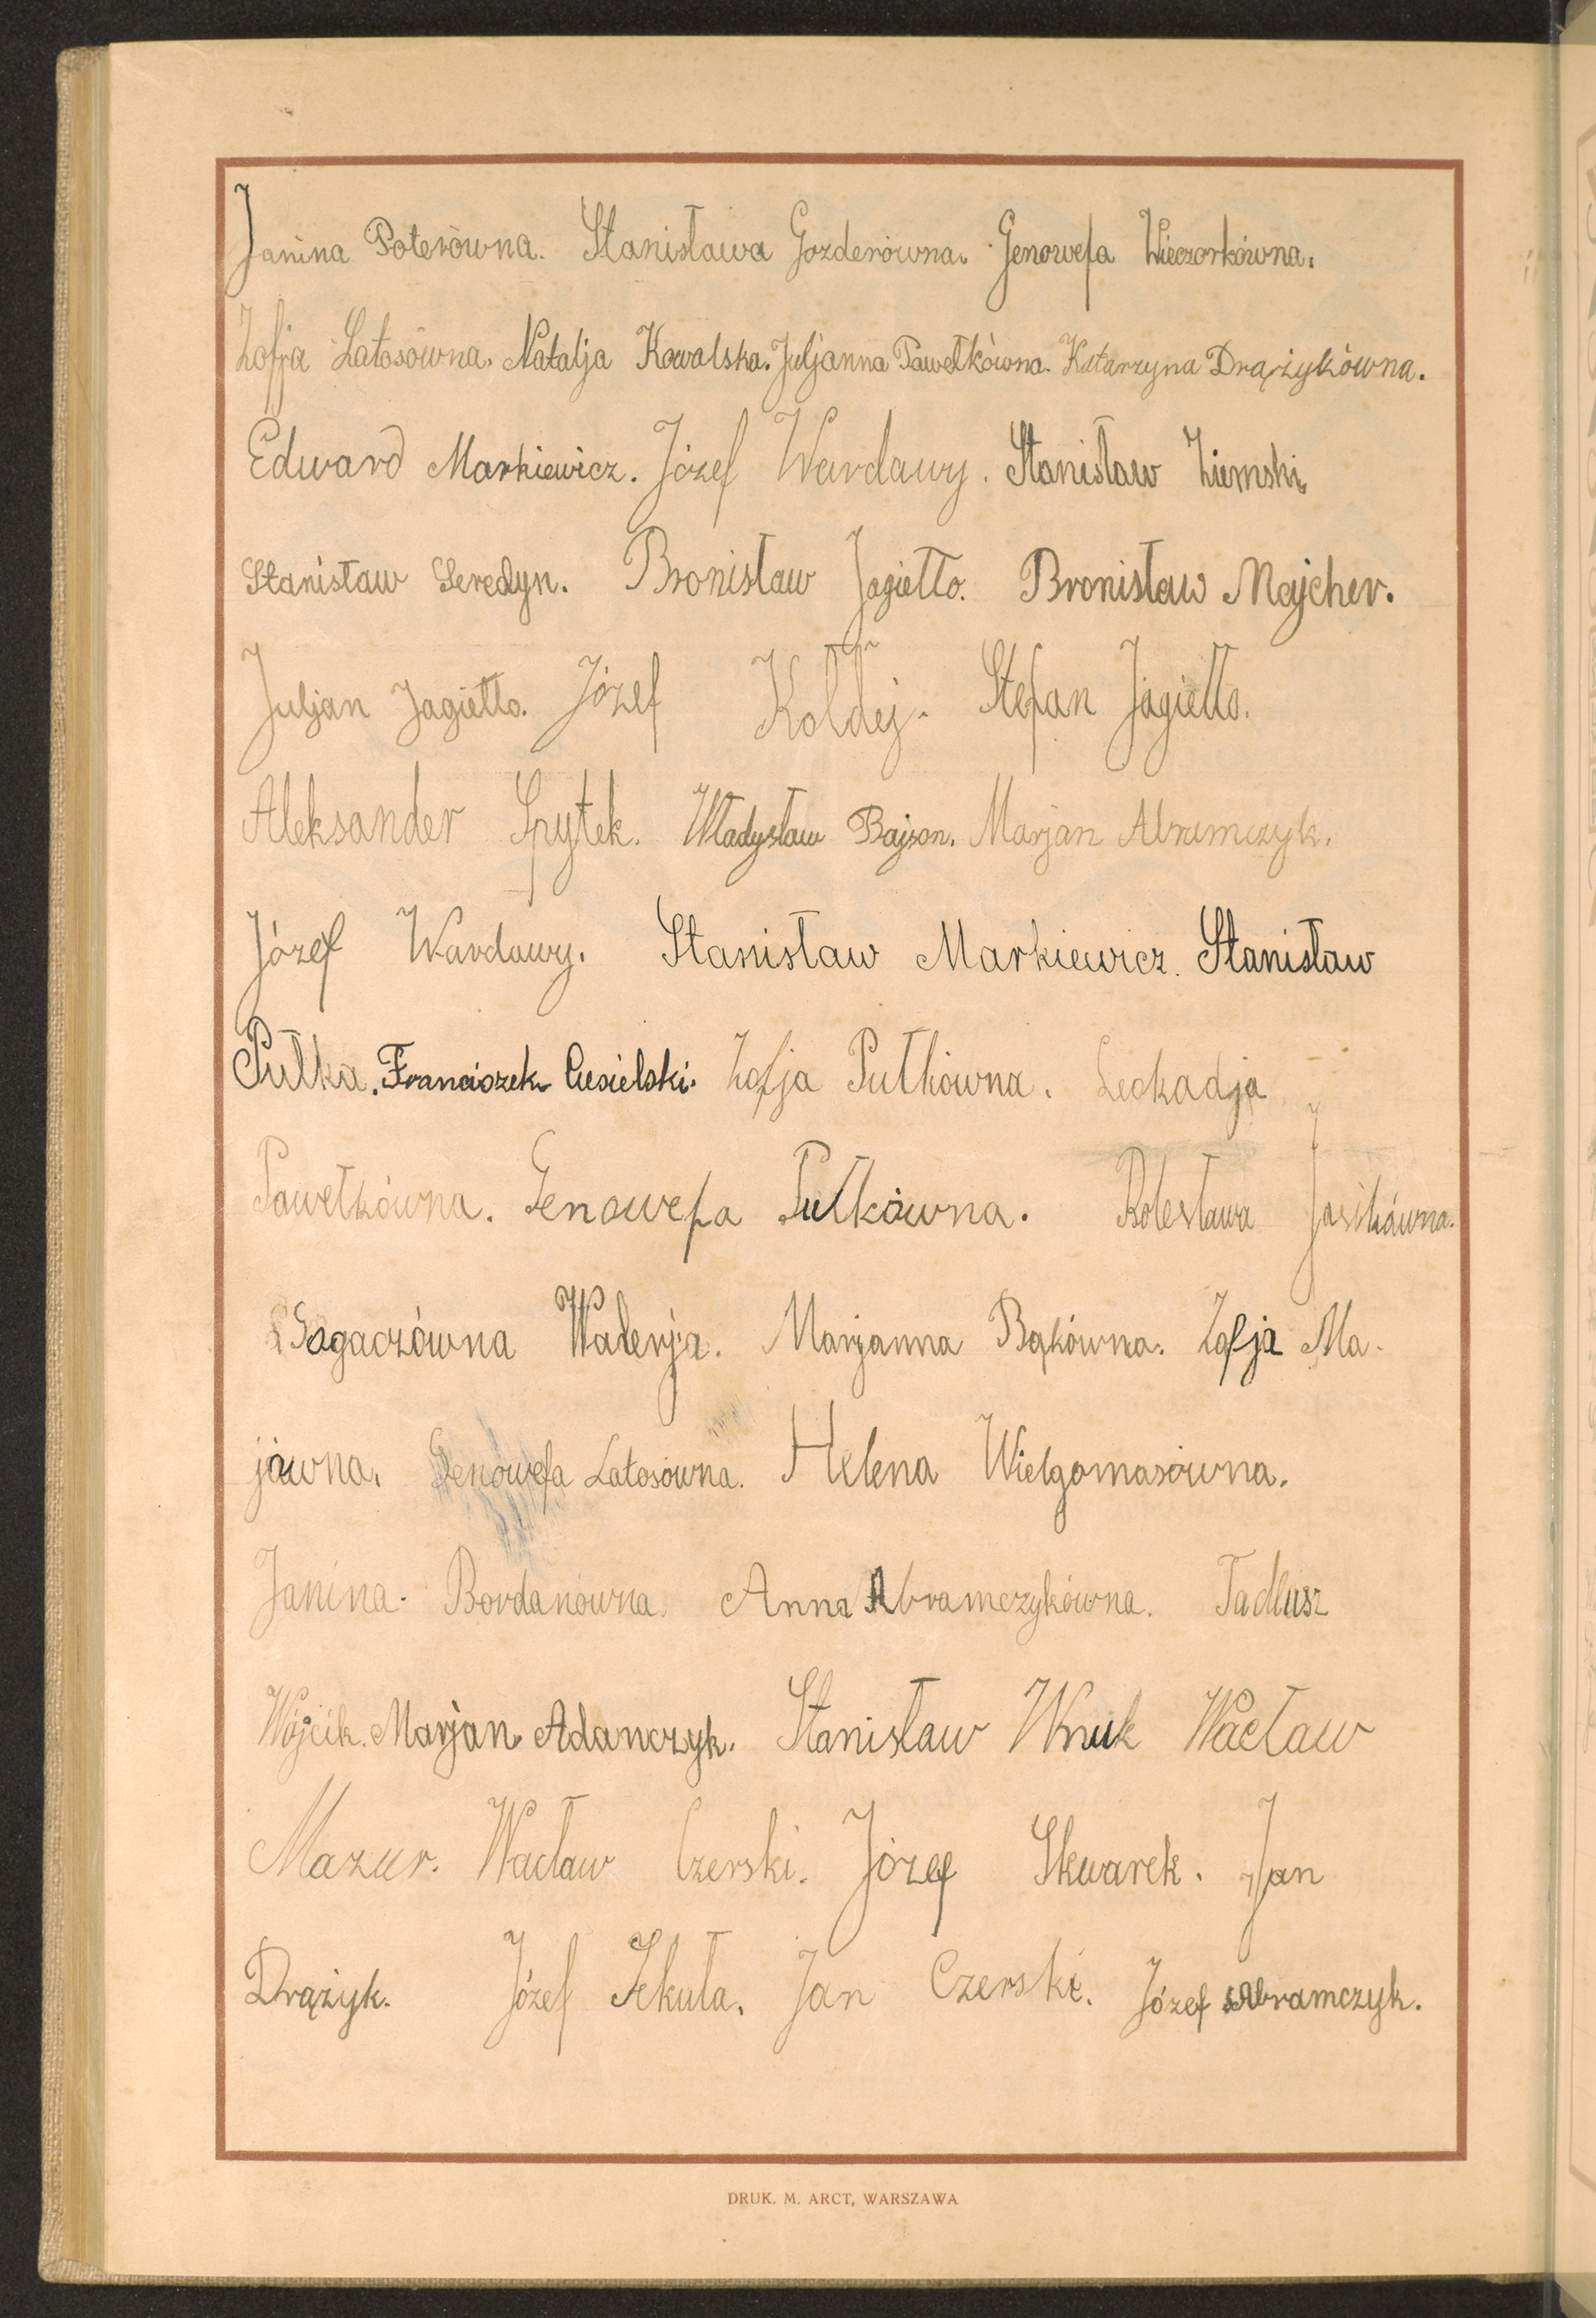 Janina Poterówna. Stanisława Gozderówna. Genowefa Wieczorkówna.
Zofja Latosówna. Natalja Kowalska. Juljanna Pawełkówna. Katarzyna Drążykówna.
Edward Markiewicz. Józef Wardawy. Stanisław Ziemski
Stanisław Seredyn. Bronisław Jagiełło. Bronisław Majcher.
Juljan Jagiełło. Józef Kołdej. Stefan Jagiełło.
Aleksander Spytek. Władysław Bajson. Marjan Abramczyk.
Józef Wardawy. Stanisław Markiewicz. Stanisław
Pułka. Franciszek Ciesielski. Zofja Pułkówna. Leokadja
Pawełkówna. Genowefa Pułkówna. Bolesława Jasikówna.
Bogaczówna Walerja. Marjanna Bąkówna. Zofja Ma-
jówna. Genowefa Latosówna. Helena Wielgomasówna.
Janina Bordanówna. Anna Abramczykówna. Tadeusz
Wójcik. Marjan Adamczyk. Stanisław Wnuk Wacław
Mazur. Wacław Czerski. Józef Skwarek. Jan
Drążyk. Józef Sekuła. Jan Czerski. Józef Abramczyk.
DRUK. M. ARCT, WARSZAWA